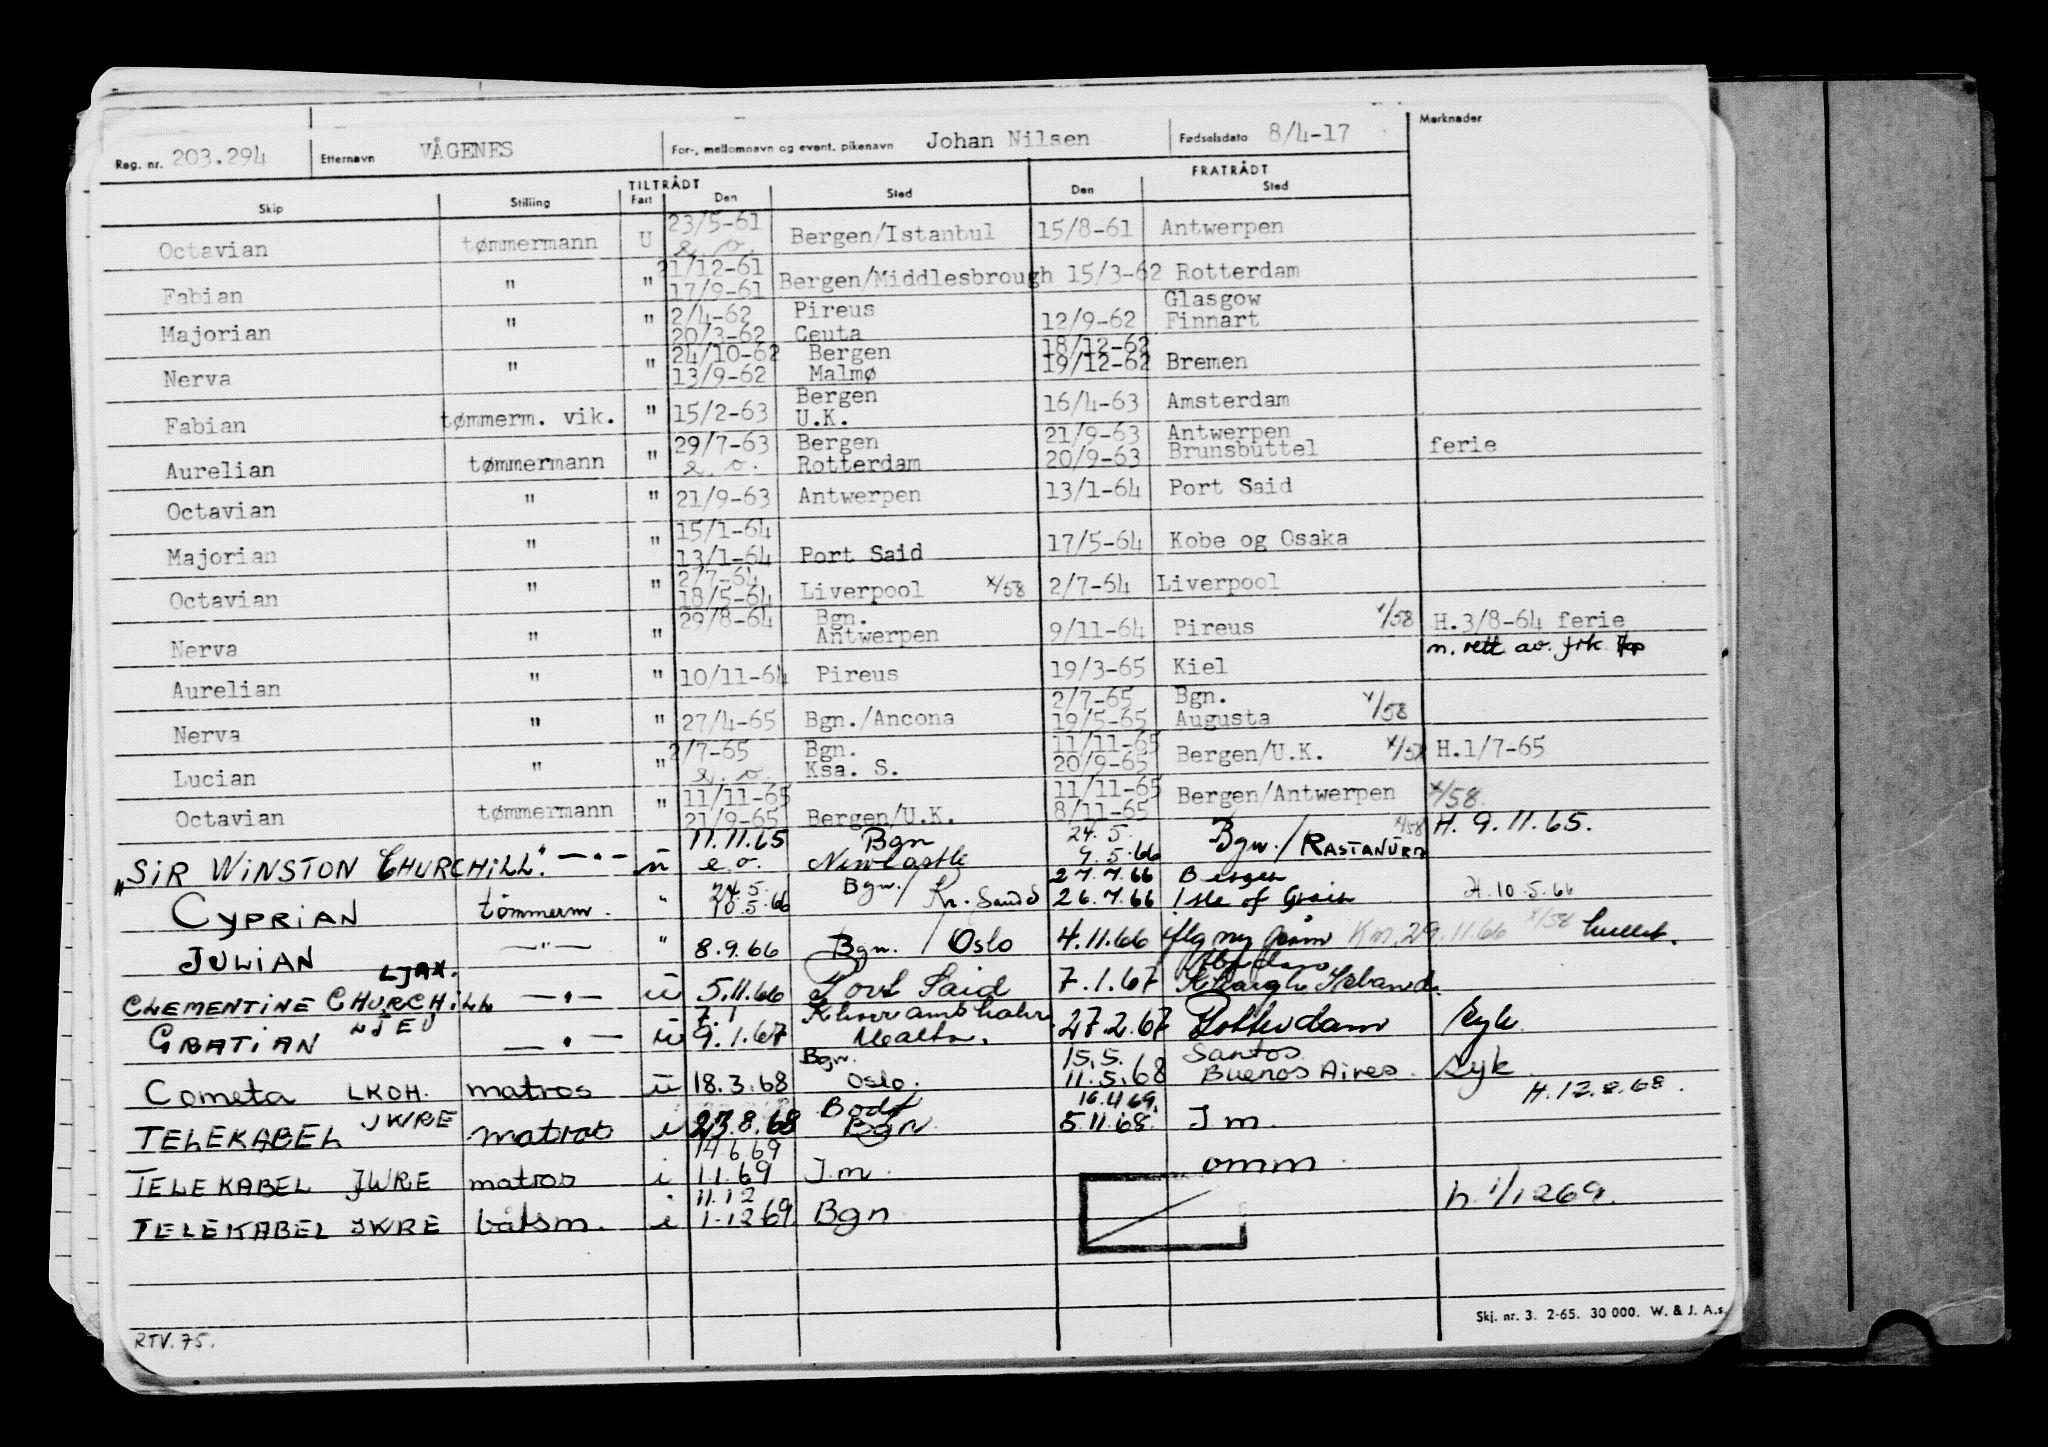 Reg. nr. 203.294 Etternavn VÅGENES For-, mellomnavn og event. pikenavn Johan Nilsen Fødselsdato 8/4-17 Merknader
TILTRÅDT FRATRÅDT
Skip Stilling Fart Den Sted Den Sted
23/5-61
Octavian tømmermann U e. o. Bergen/Istanbul 15/8-61 Antwerpen
21/12-61
Fabian " " 17/9-61 Bergen/Middlesbrough 15/3-62 Rotterdam
2/4-62 Pireus Glasgow
Majorian " " 20/3-62 Ceuta 12/9-62 Finnart
24/10-62 Bergen 18/12-62
Nerva " " 13/9-62 Malmø 19/12-62 Bremen
Bergen
Fabian tømmerm. vik. " 15/2-63 U.K. 16/4-63 Amsterdam
29/7-63 Bergen 21/9-63 Antwerpen
Aurelian tømmermann " e. o. Rotterdam 20/9-63 Brunsbüttel ferie
Octavian " " 21/9-63 Antwerpen 13/1-64 Port Said
15/1-64
Majorian " " 13/1-64 Port Said 17/5-64 Kobe og Osaka
2/7-64
Octavian " " 18/5-64 Liverpool x/58 2/7-64 Liverpool
29/8-64 Bgn.
Nerva " " Antwerpen 9/11-64 Pireus x/58 H.3/8-64 ferie
n. rett av. frk.
Aurelian " " 10/11-64 Pireus 19/3-65 Kiel
2/7-65 Bgn.
Nerva " " 27/4-65 Bgn./Ancona 19/5-65 Augusta x/58
2/7-65 Bgn. 11/11-65
Lucian " " e. o. Ksa. S. 20/9-65 Bergen/U.K. x/58 H.1/7-65
11/11-65 11/11-65
Octavian tømmermann " 21/9-65 Bergen/U.K. 8/11-65 Bergen/Antwerpen x/58
11.11.65 Bgn 24.5. x/58 H. 9.11.65.
"SIR WINSTON CHURCHILL" —"— u e.o. Newcastle 9.5.66 Bgn./RASTANURA
24.5. Bgn./ 27.7.66 Bergen
CYPRIAN tømmerm. " 10.5.66 Kr. Sand S 26.7.66 Isle of Grain H.10.5.66
JULIAN —"— " 8.9.66 Bgn. / Oslo 4.11.66 Km. 29.11.66 x/58
LJAX. Abadan
CLEMENTINE CHURCHILL —"— u 5.11.66 Port Said 7.1.67 Kharg Island.
LJEU 7.1
GRATIAN —"— u 9.1.67 Malta. 27.2.67 Rotterdam syk
Bgn. 15.5. Santos
Cometa LKOH. matros u 18.3.68 Oslo. 11.5.68 Buenos Aires. syk
Bodø 16.4 69. H. 12.8.68.
TELEKABEL JWRE matros i 23.8.68 Bgn 5.11.68. I m.
14.6.69
TELEKABEL JWRE matros i 1.1.69 I.m. omm.
11.12
TELEKABEL JWRE båtsm. i 1.12 69 Bgn h. 1/12 69.
Skj. nr. 3. 2-65. 30 000. W. & J. A.s.
RTV. 75.